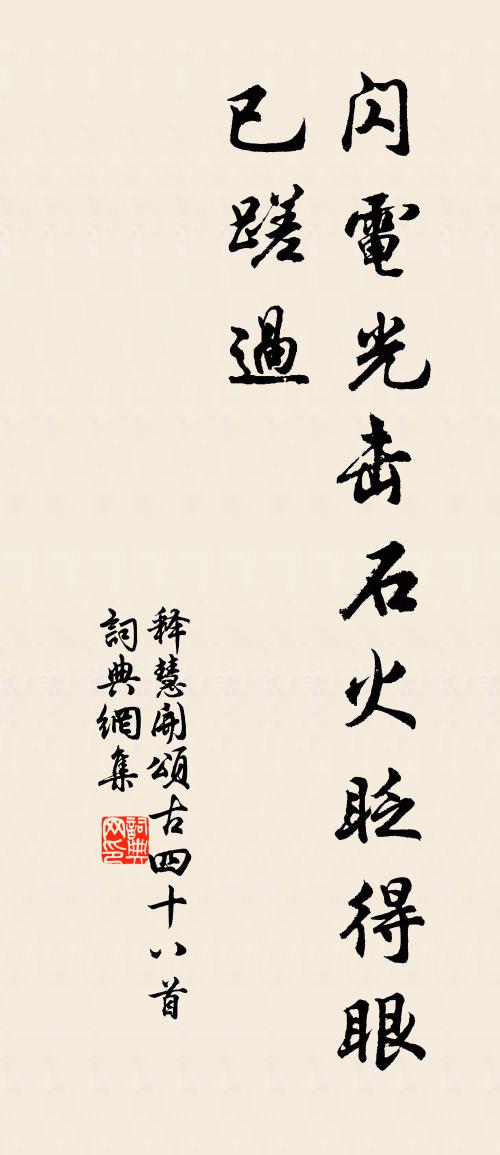 闪電光击石火眨得眼
已蹉過
释慧開頌古四十八首
詞典網集
詞典
网印